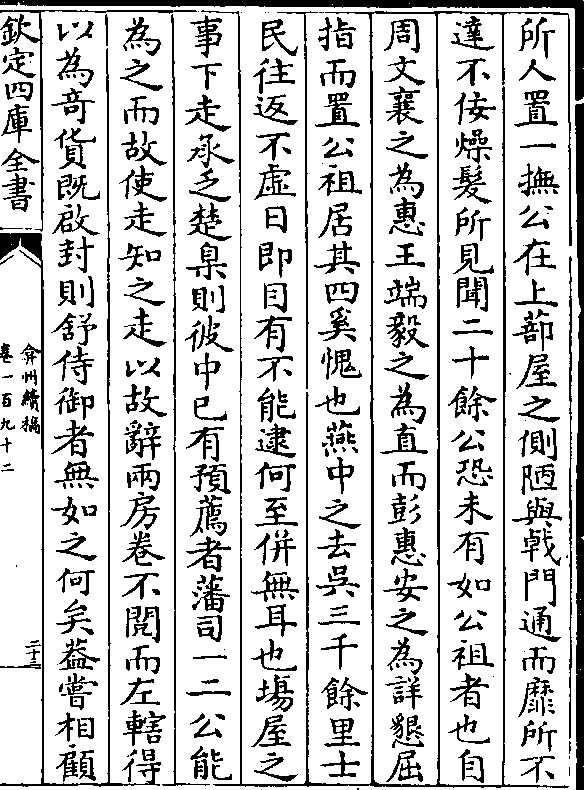 所人置一撫公在上蔀屋之側陋與㦸門通而靡所不
達不佞燥髮所見聞二十餘公恐未有如公祖者也自
周文襄之為惠王端毅之為直而彭惠安之為詳懇屈
指而置公祖居其四奚愧也燕中之去吳三千餘里士
民往返不虛日即目有不能逮何至併無耳也場屋之
事下走承乏楚臬則彼中已有預薦者藩司一二公能
為之而故使走知之走以故辭兩房卷不閱而左轄得
以為竒貨既啟封則舒侍御者無如之何矣葢嘗相顧
欽定四庫全書
弇州續稿
卷一百九十二
二十三